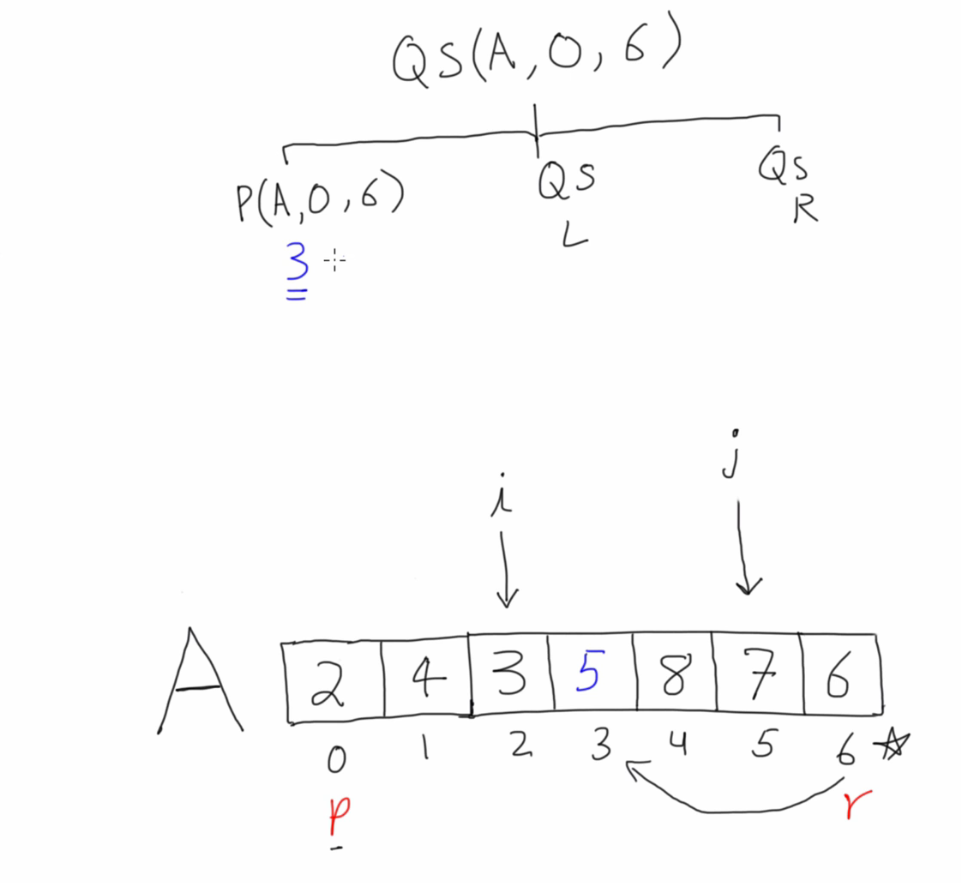 QS(A,0,6)
P(A,0,6) QS QS
L R
3
i j
A 2 4 3 5 8 7 6
0 1 2 3 4 5 6
p r